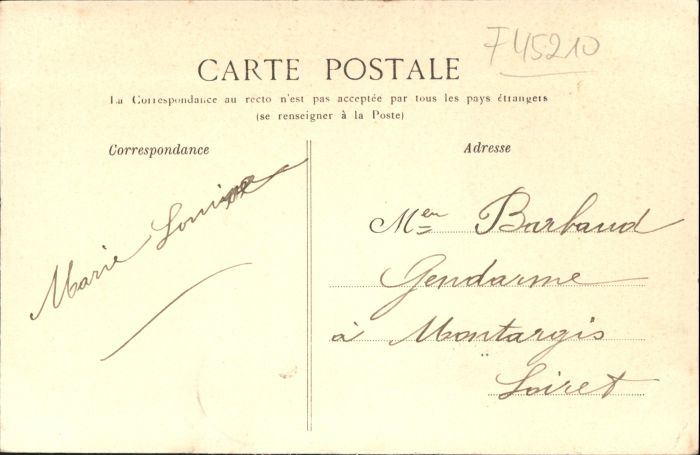 F45210
CARTE POSTALE
La Correspondance au recto n'est pas acceptée par tous les pays étrangers
(se renseigner à la Poste)
Correspondance
Marie Louise
Adresse
Mer Barbaud
Gendarme
à Montargis
Loiret